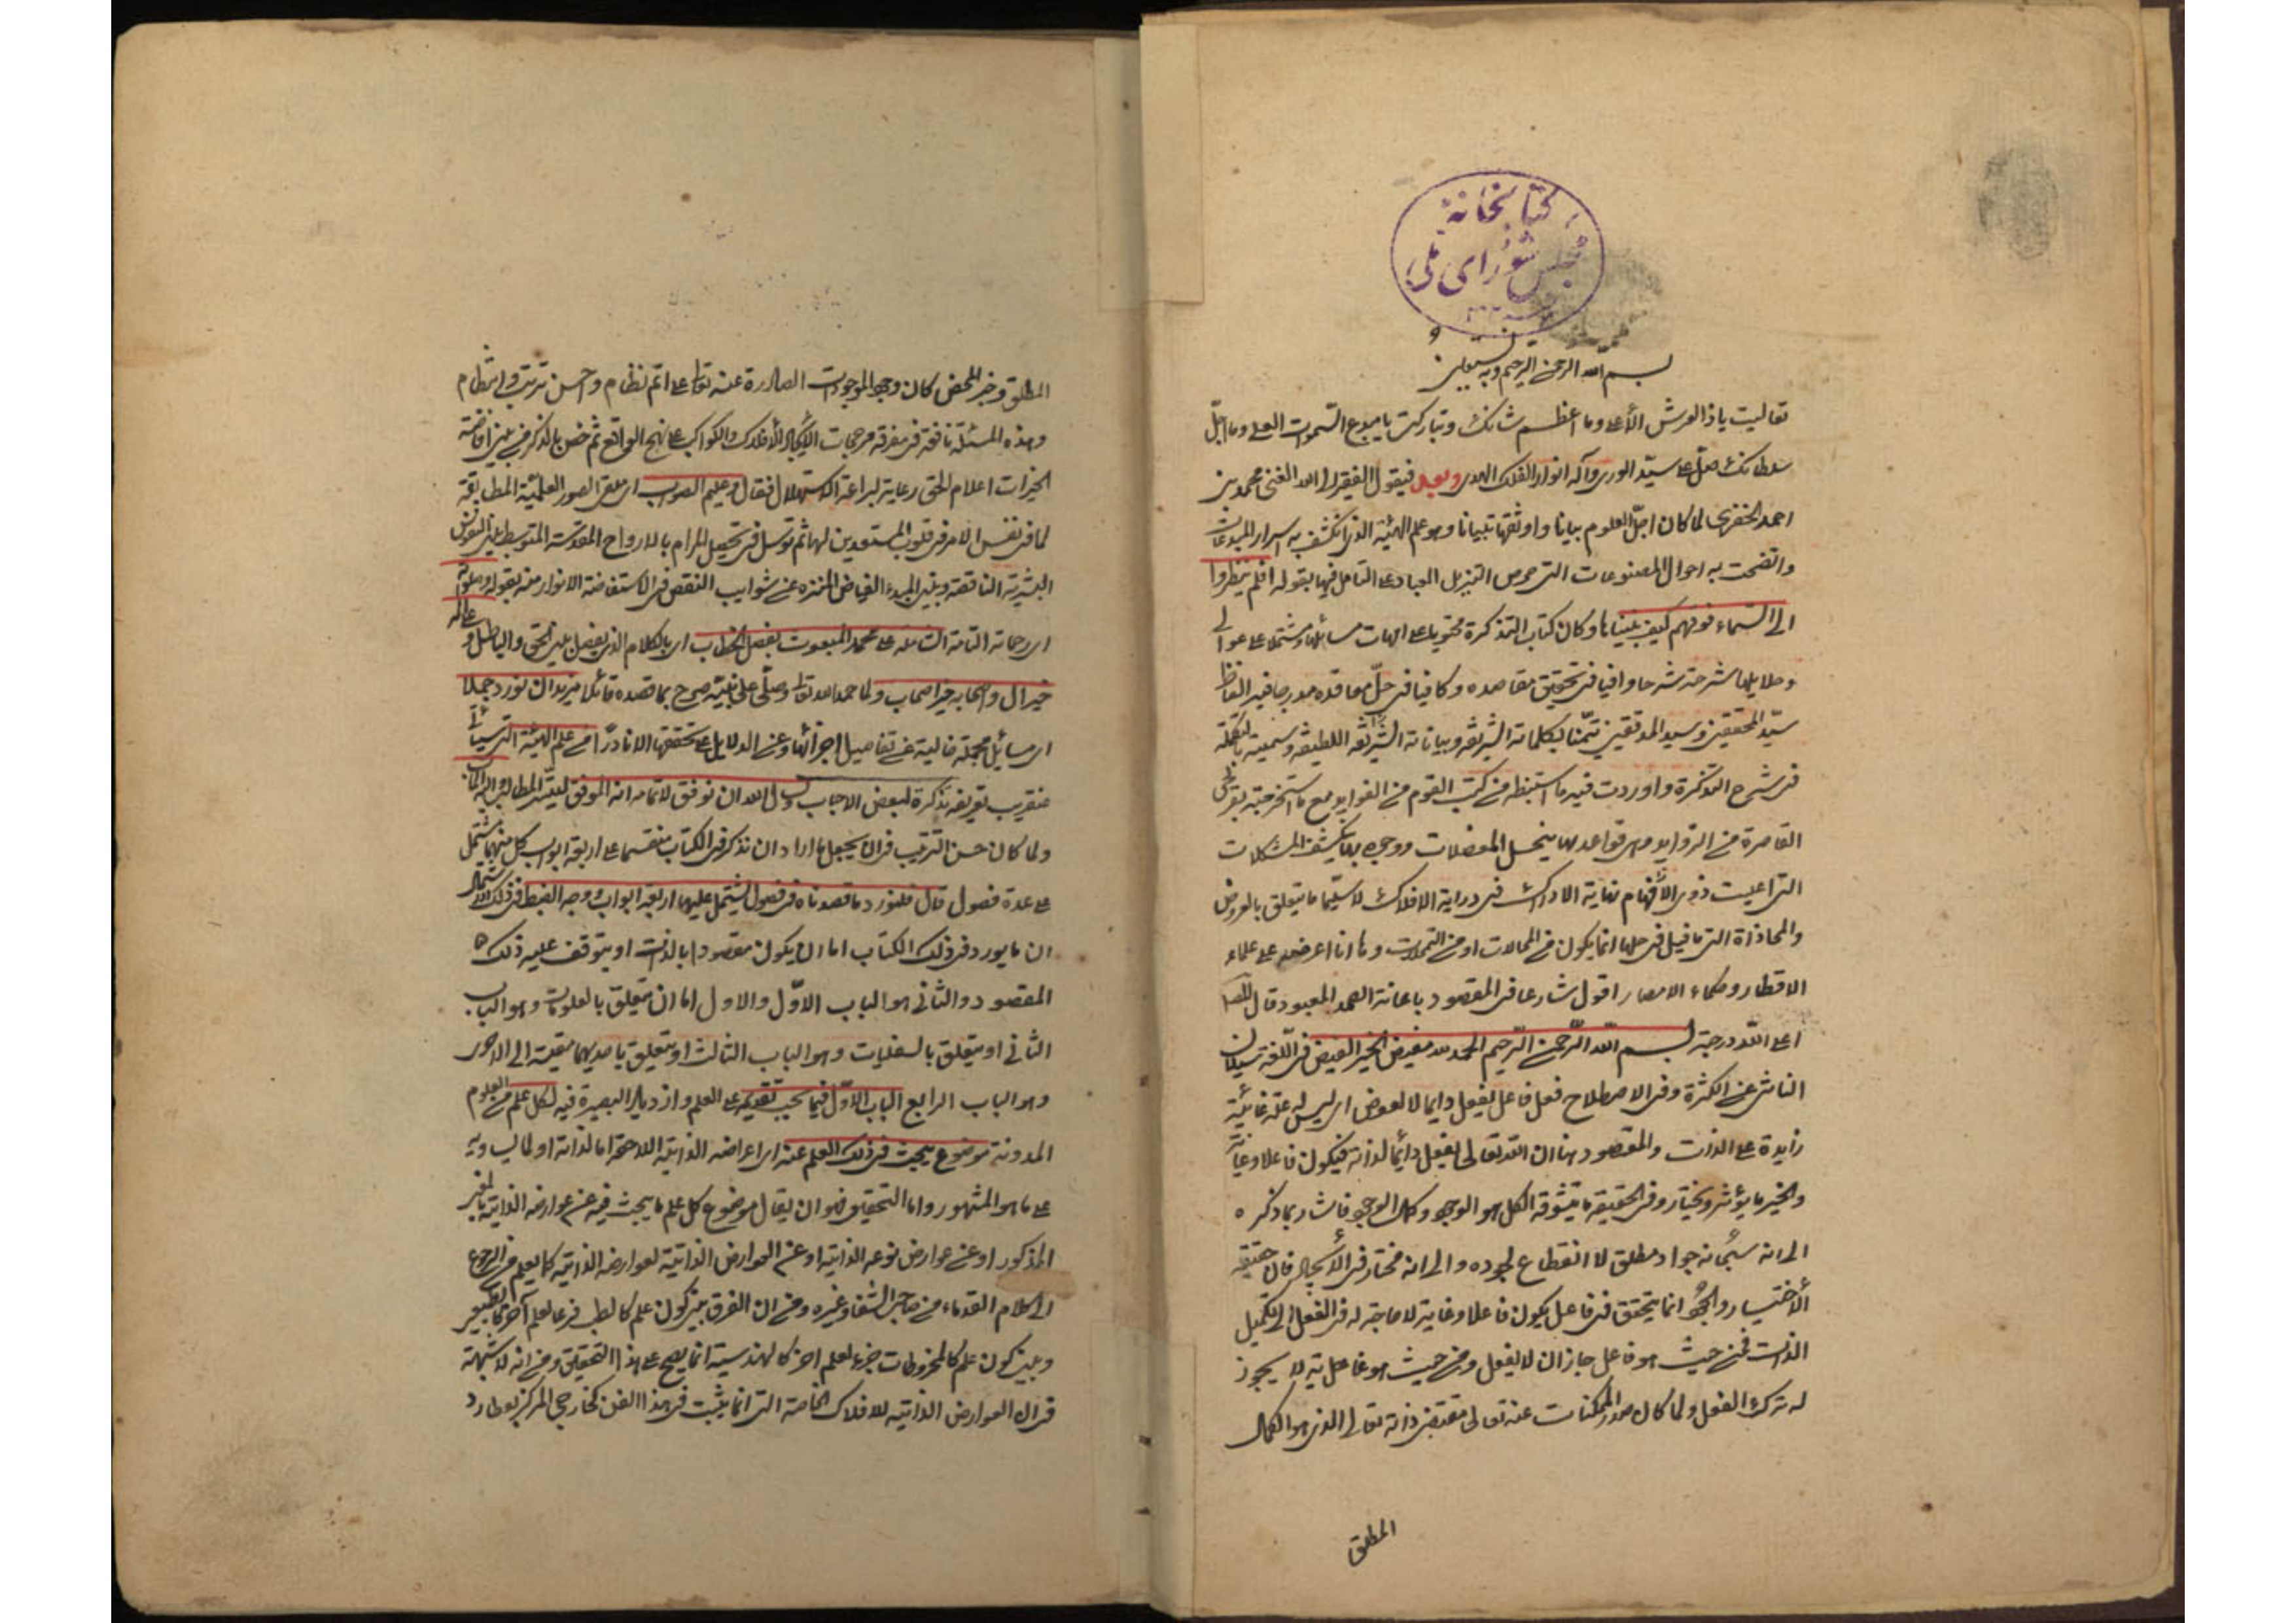 كتابخانۀ
مجلس شورای ملی
بسم الله الرحمن الرحيم وبه نستعين
تعاليت ياذا العرش الأعلى وما اعظم شانك وتباركت يا مبدع السموات العلى وما اجلّ
سلطانك صلّ على سيّد الورى وآله انوار الفلك الهدى وبعد فيقول الفقير الى الله الغنى محمد بن
احمد الخفرى لما كان اجلّ العلوم بيانا واوثقها تبيانا وهو علم الهيئة الذى انكشف به اسرار المبدعات
واتضحت به احوال المصنوعات التى حرص التنزيل العباد على التامل فيها بقوله افلم ينظروا
الى السماء فوقهم كيف بنيناها وكان كتاب التذكرة محتويا على امهات مسائلها ومشتملا على عوالى
دلايلها شرحته شرحا وافيا فى تحقيق مقاصده وكافيا فى حلّ معاقده مدرجا فيه الفاظ
سيّد المحققين وسيد المدققين تيمّنا بكلماته الشريفة وبياناته الشريفة اللطيفة وسميته بالتكملة
فى شرح التذكرة واوردت فيه ما استنبطه من كتب القوم من الفوايد مع ما استخرجته بقريحتى
القاصرة من الزوايد وهى قواعد بها ينحل المعضلات ووجوه بها ينكشف المشكلات
التى اعيت ذوى الأفهام نهاية الادراك فى دراية الافلاك لا سيّما ما يتعلق بالعروض
والمحاذاة التى ما قيل فى حلها انما يكون من المحالات او من التمحلات وها انا اعرضه على علماء
الاقطار وحكماء الامصار اقول شارعا فى المقصود باعانة الصمد المعبود قال المصنف
اعلى الله درجته بسم الله الرّحمن الرّحيم الحمد لله مفيض الخير الفيض فى اللغة سيلان
الناشى عن الكثرة وفى الاصطلاح فعل فاعل يفعل دايما لا لعوض اى ليس له علة غائية
زايدة على الذات والمقصود هنا ان الله تعالى يفعل دائما لذاته فيكون فاعلا وغاية
والخير ما يؤثر ويختار وفى الحقيقة ما يتشوقه الكل هو الوجود وكمال الوجود فاشار بما ذكره
الى انه سبحانه جواد مطلق لا انقطاع لجوده والى انه مختار فى الأيجاد فان حقيقة
الأختيار والجود انما يتحقق فى فاعل يكون فاعلا وغاية لا حاجة له فى الفعل الى تكميل
الذات فمن حيث هو فاعل جاز ان لا يفعل ومن حيث هو فاعليته لا يجوز
له ترك الفعل ولما كان صدور الممكنات عنه تعالى مقتضى ذاته تعالى الذى هو الكمال
المطلق
المطلق وخير المحض كان وجود الموجودات الصادرة عنه تعالى على اتم نظام واحسن ترتيب وانتظام
وهذه المسئلة نافعة فى معرفة موجبات الأيجاد الأفلاك والكواكب على نهج الواقع ثم خص بالذكر من بين افاضة
الخيرات اعلام الحق رعاية لبراعة الاستهلال فقال وملهم الصواب اى ملقى الصور العلمية المطابقة
لما فى نفس الامر فى قلوب المستعدين لها ثم توسل فى تحصيل المرام بالارواح المقدسة المتوسط بين النفوس
البشرية الناقصة وبين المبدء الفياض المنزه عن شوايب النقص فى الاستفاضة الانوار منه بقوله وصلواته
اى رحماته التامة الشاملة على محمد المبعوث بفصل الخطاب اى بالكلام الذى يفصل بين الحق والباطل وعلى آله
خير آل واصحابه خير اصحاب ولما حمد الله تعالى وصلّى على نبيّه صرح بما قصده قائلا نريد ان نورد جملا
اى مسائل مجملة خالية عن تفاصيل اجزائها وعن الدلايل على تحققها الا نادرا من علم الهيئة التى سيأتى
عنقريب تعريفه تذكرة لبعض الاحباب ونسأل الله ان نوفق لاتمامه انه الموفق لتيسّر المطالب واليه المآب
ولما كان حسن الترتيب فى ان يجعل ما اراد ان نذكر فى الكتاب منقسما على اربعة ابواب كل منها مشتمل
على عدة فصول قال فلنورد ما قصدناه فى فصول يشتمل عليها اربعة ابواب وجه الضبط فى ذلك الاشتمال
ان ما يورد فى ذلك الكتاب اما ان يكون مقصودا بالذات او يتوقف عليه ذلك
المقصود والثانى هو الباب الاوّل والاول اما ان يتعلق بالعلويات وهو الباب
الثانى او يتعلق بالسفليات وهو الباب الثالث او يتعلق باحديهما مقيسة الى الاخرى
وهو الباب الرابع الباب الاوّل فيما يجب تقديمه على العلم وازدياد البصيرة فيه لكل علم من العلوم
المدونة موضوع يبحث فى ذلك العلم عنه اى اعراضه الذاتية اللاحقة اما لذاته او لما يساويه
على ما هو المشهور واما التحقيق فهو ان يقال موضوع كل علم ما يبحث فيه عن عوارضه الذاتية بالمعنى
المذكور او عن عوارض نوعه الذاتية او عن العوارض الذاتية لعوارضه الذاتية كما يعلم من الرجوع
الى كلام القدماء من صاحب الشفا وغيره ومن ان الفرق بين كون علم كالطب فرعا لعلم آخر كالطبيعى
وبين كون علم كالمخروطات جزءا لعلم اخر كالهندسية انما يصح على هذا التحقيق ومن انه لا شبهة
فى ان العوارض الذاتية للافلاك الخاصة التى انما يثبت فى هذا الفن كخارجى المركز لعطارد